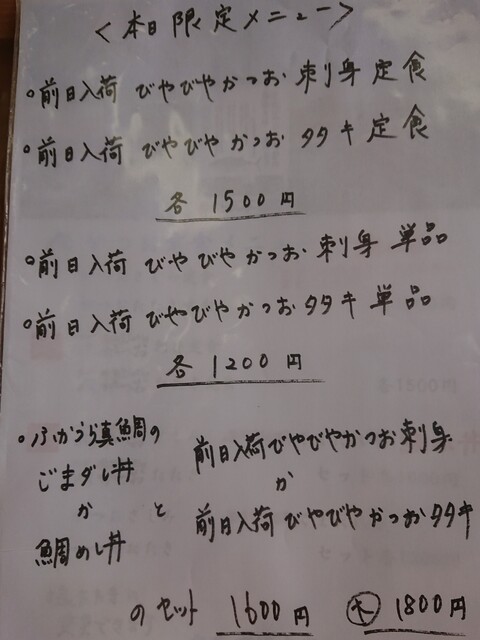 ＜本日限定メニュー＞
○前日入荷 びやびやかつお 刺身 定食
○前日入荷 びやびやかつお タタキ 定食
各 1500円
○前日入荷 びやびやかつお 刺身 単品
○前日入荷 びやびやかつお タタキ 単品
各 1200円
○ふかうら真鯛の
ごまダレ丼
か
鯛めし丼
と
前日入荷びやびやかつお刺身
か
前日入荷びやびやかつおタタキ
のセット 1600円 大 1800円